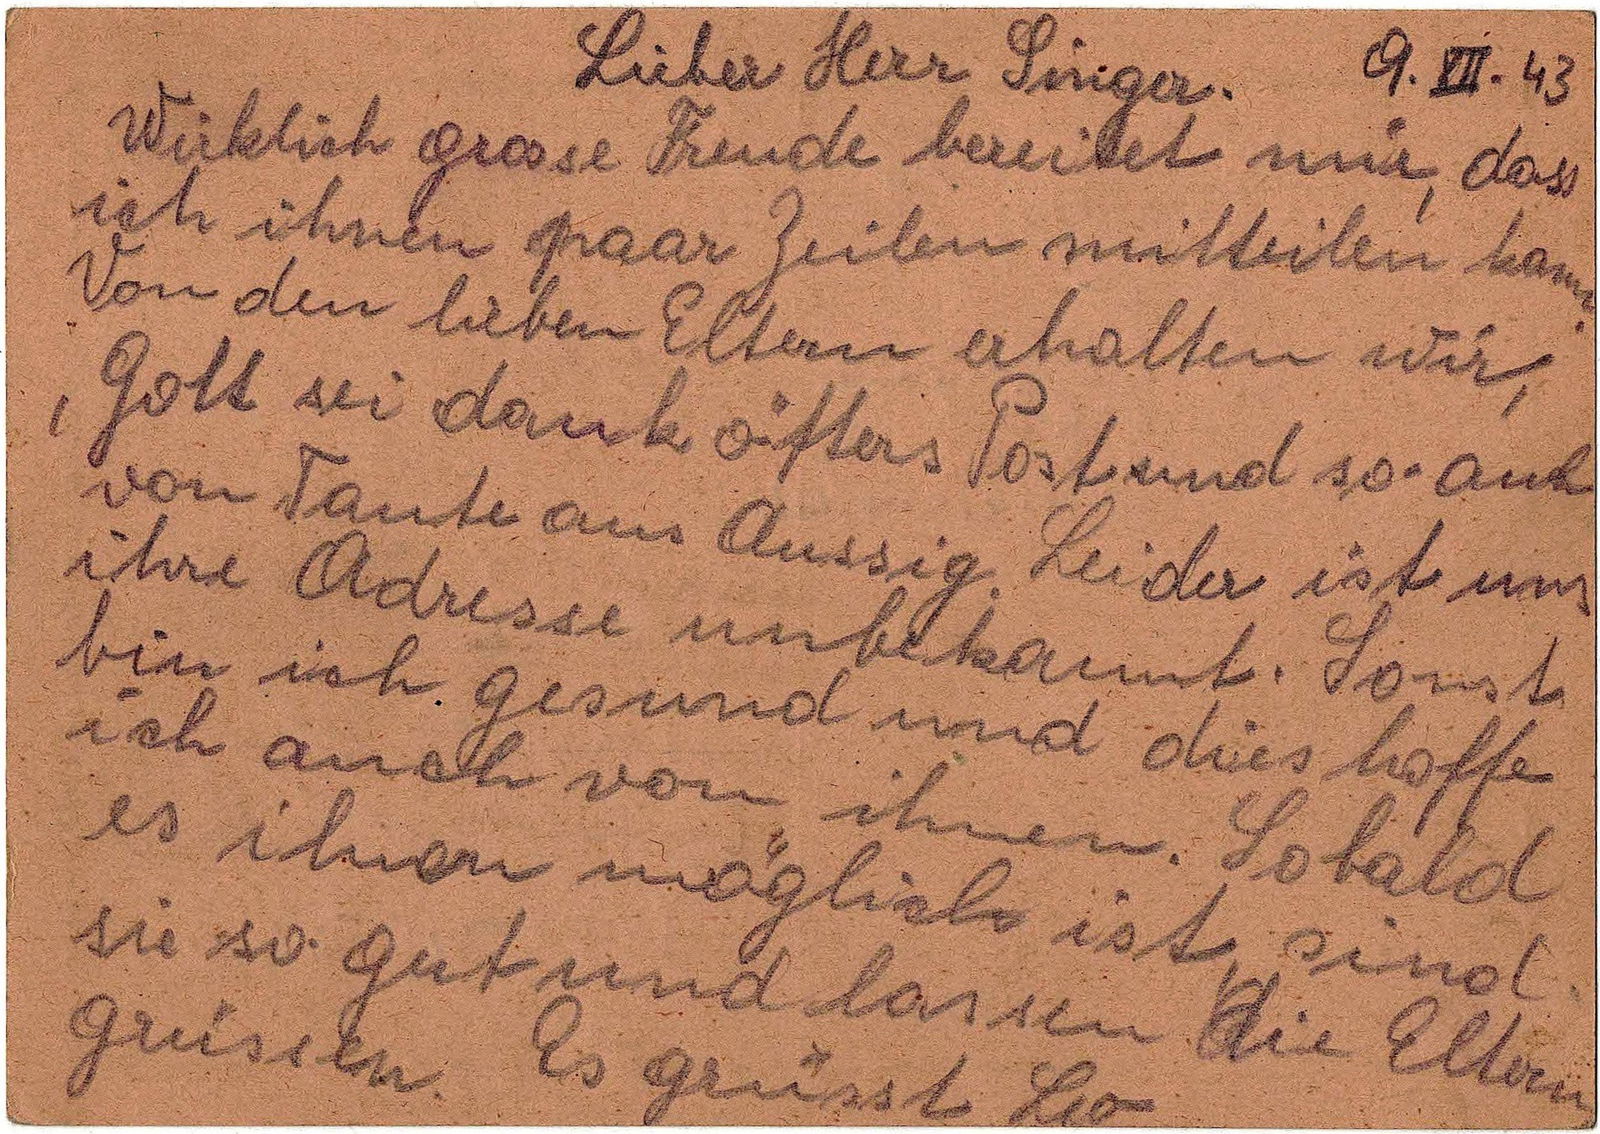 Lieber Herr Singer. 9. VII. 43
Wirklich grosse Freude bereitet mir, dass
ich ihnen paar Zeilen mitteilen kann.
Von den lieben Eltern erhalten wir,
Gott sei dank öfters Post und so auch
von Tante aus Aussig. Leider ist uns
ihre Adresse unbekannt. Sonst
bin ich gesund und dies hoffe
ich auch von ihnen. Sobald
es ihnen möglich ist, sind
sie so gut und lassen die Eltern
grüsen. Es grüsst Leo